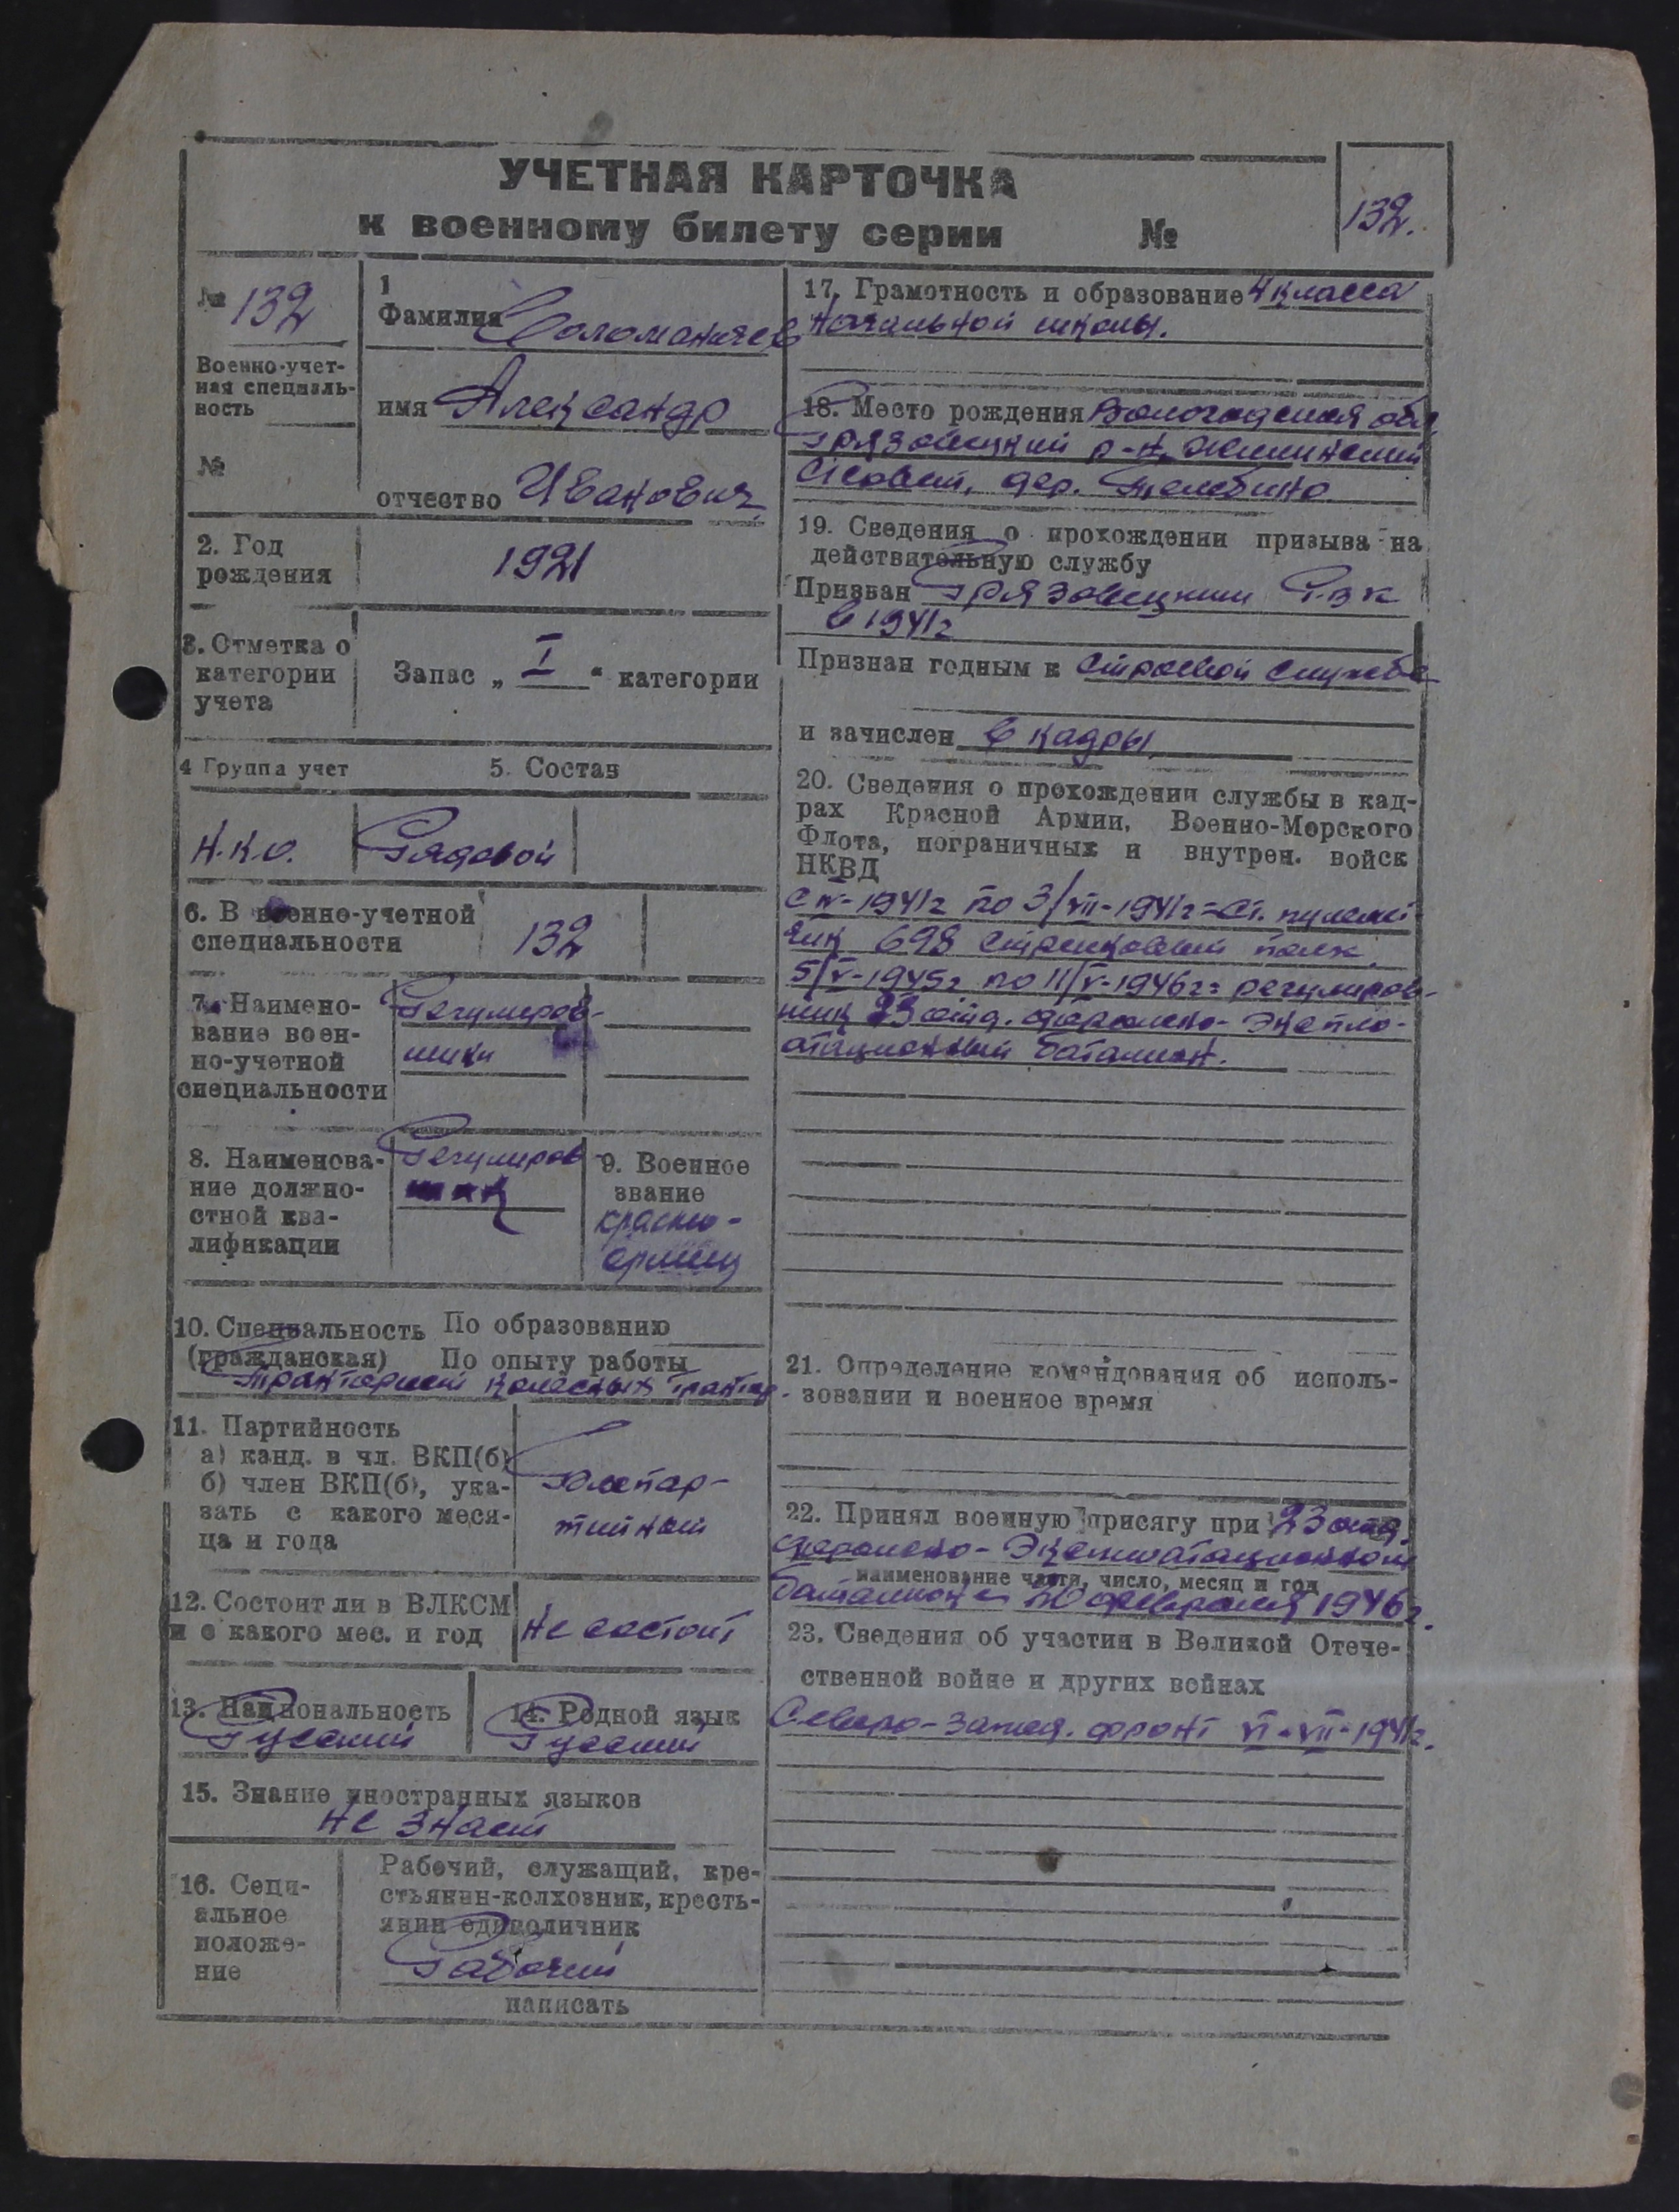 УЧЕТНАЯ КАРТОЧКА
к военному билету серии №
132.
№ 132
Военно-учет-
ная специаль-
ность
№
1
Фамилия Соломаничев
имя Александр
отчество Иванович
2. Год
рождения
1921
3. Отметка о
категории
учета
Запас „ I “ категории
4 Группа учет
5. Состав
Н.К.О.
Рядовой
6. В военно-учетной
специальности
132
7. Наимено-
вание воен-
но-учетной
специальности
Регулиров-
щики
8. Наименова-
ние должно-
стной ква-
лификации
Регулиров
щик
9. Военное
звание
красно-
армеец
10. Специальность По образованию
(гражданская) По опыту работы
Тракторист колесных трактор-
11. Партийность
а) канд. в чл. ВКП(б)
б) член ВКП(б), ука-
зать с какого меся-
ца и года
Беспар-
тийный
12. Состоит ли в ВЛКСМ
и с какого мес. и год
Не состоит
13. Национальность
Русский
14. Родной язык
Русский
15. Знание иностранных языков
Не знает
16. Соци-
альное
положе-
ние
Рабочий, служащий, кре-
стьянин-колхозник, кресть-
янин единоличник
Рабочий
написать
17. Грамотность и образование 4 класса
Начальной школы.
18. Место рождения Вологодская обл
Грязовецкий р-н,
С/совет, дер.
19. Сведения о прохождении призыва на
действительную службу
Призван Грязовецким РВК
в 1941г
Признан годным к строевой службе
и зачислен в кадры
20. Сведения о прохождении службы в кад-
рах Красной Армии, Военно-Морского
Флота, пограничных и внутрен. войск
НКВД
с IV-1941г по 3/VII-1941г = Ст. пулемет-
чик 698 стрелковый полк.
5/V-1945г по 11/V-1946г = регулиров-
щик 23 отд. дорожно-эксплo-
атационный баталион.
21. Определение командования об исполь-
зовании и военное время
22. Принял военную присягу при 23 отд.
дорожно-Эксплоатационном
наименование части, число, месяц и год
баталионе февраля 1946г.
23. Сведения об участии в Великой Отече-
ственной войне и других войнах
Северо-Запад. фронт VI-VII-1941г.